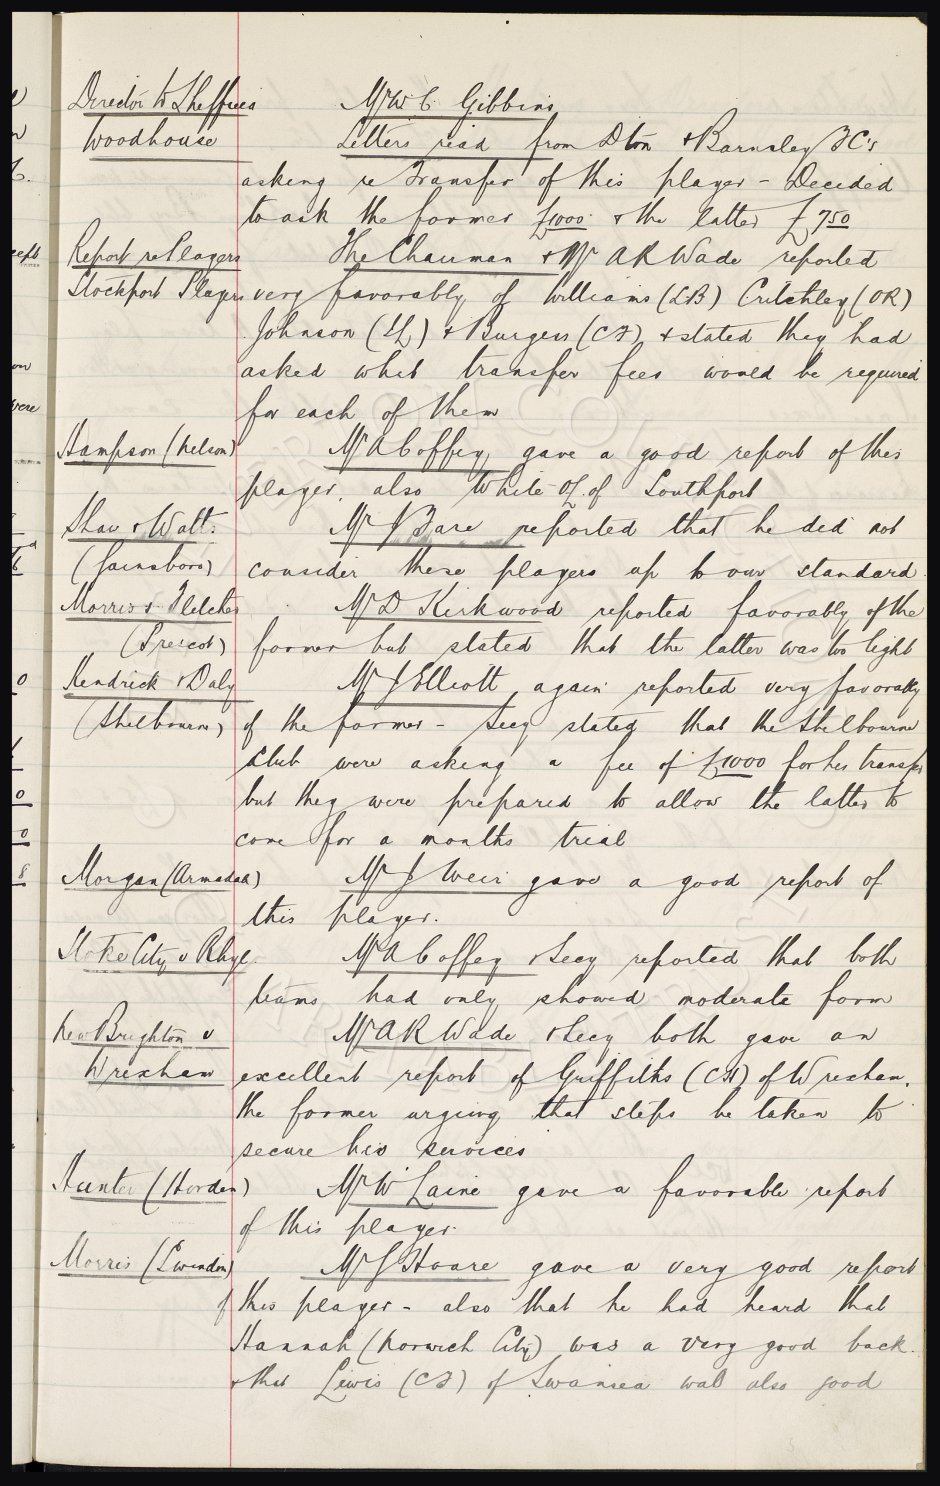 Director to Sheffield Mr W C Gibbins
Woodhouse Letters read from Dton & Barnsley FC's
asking re Transfer of this player - Decided
to ask the former £1000 & the latter £750
Report re Players The Chairman & Mr A R Wade reported
Stockport Players very favorably of Williams (LB) Critchley (OR)
Johnson (IL) & Burgess (CF) & stated they had
asked what transfer fees would be required
for each of them
Hampson (Nelson) Mr A Coffey gave a good report of this
player, also White OL of Southport
Shaw & Watt. Mr J Bare reported that he did not
(Gainsboro) consider these players up to our standard.
Morris & Fletcher Mr D Kirkwood reported favorably of the
(Prescot) former but stated that the latter was too light
Kendrick & Daly Mr J Elliott again reported very favorably
(Shelbourne) of the former - Secy stated that the Shelbourne
Club were asking a fee of £1000 for his transfer
but they were prepared to allow the latter to
come for a months trial
Morgan (Armadale) Mr J Weir gave a good report of
this player.
Stoke City v Rhyl. Mr A Coffey & Secy reported that both
teams had only showed moderate form
New Brighton v Mr A R Wade & Secy both gave an
Wrexham excellent report of Griffiths (CH) of Wrexham,
the former urging that steps be taken to
secure his services
Hunter (Horden) Mr W Laine gave a favorable report
of this player.
Morris (Swindon) Mr J Hoare gave a very good report
of this player - also that he had heard that
Hannah (Norwich City) was a very good back.
& that Lewis (CF) of Swansea was also good